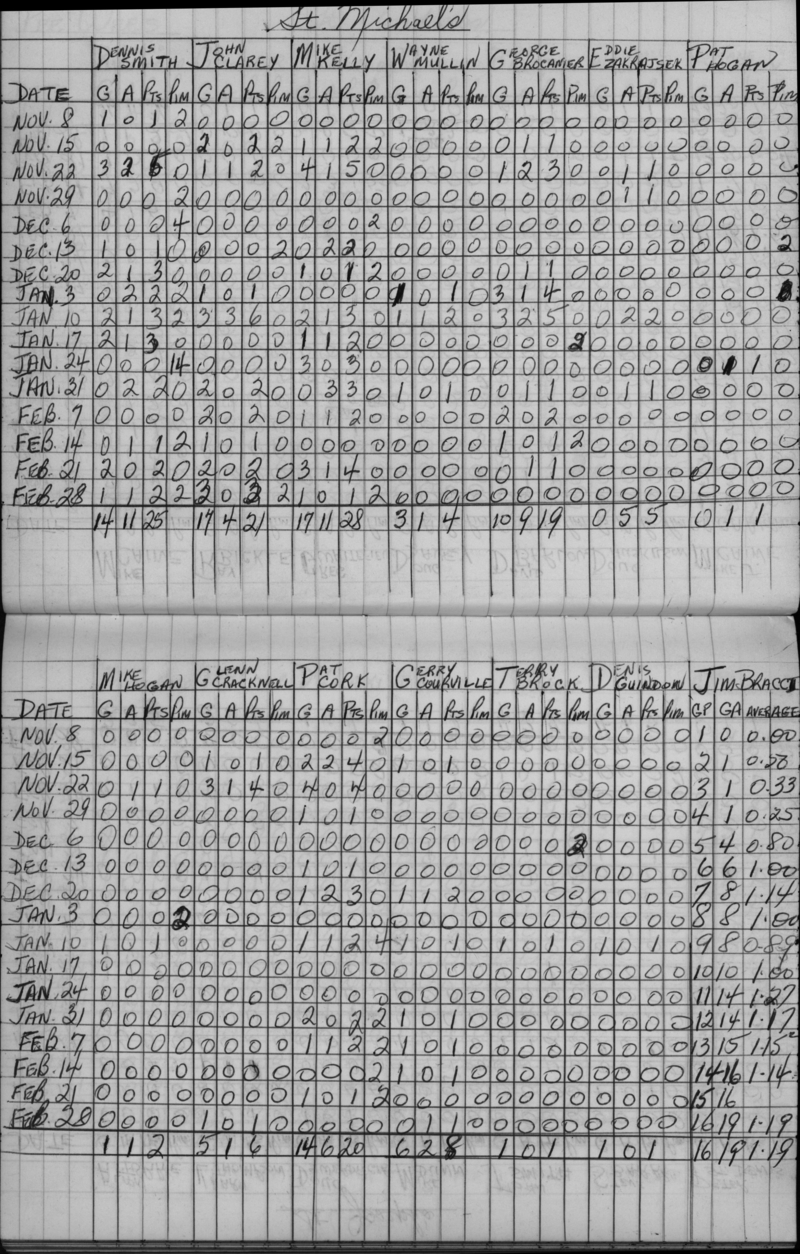 St. Michael's
DENNIS SMITH JOHN CLAREY MIKE KELLY WAYNE MULLIN GEORGE BROCANIER EDDIE ZAKRAJSEK PAT HOGAN
DATE G A Pts Pim G A Pts Pim G A Pts Pim G A Pts Pim G A Pts Pim G A Pts Pim G A Pts Pim
NOV. 8 1 0 1 2 0 0 0 0 0 0 0 0 0 0 0 0 0 0 0 0 0 0 0 0 0 0 0 0
NOV. 15 0 0 0 0 2 0 2 2 1 1 2 2 0 0 0 0 0 1 1 0 0 0 0 0 0 0 0 0
NOV. 22 3 2 5 0 1 1 2 0 4 1 5 0 0 0 0 0 1 2 3 0 0 1 1 0 0 0 0 0
NOV. 29 0 0 0 2 0 0 0 0 0 0 0 0 0 0 0 0 0 0 0 0 0 1 1 0 0 0 0 0
DEC. 6 0 0 0 4 0 0 0 0 0 0 0 2 0 0 0 0 0 0 0 0 0 0 0 0 0 0 0 0
DEC. 13 1 0 1 0 0 0 0 2 0 2 2 0 0 0 0 0 0 0 0 0 0 0 0 0 0 0 0 2
DEC. 20 2 1 3 0 0 0 0 0 1 0 1 2 0 0 0 0 0 1 1 0 0 0 0 0 0 0 0 0
JAN. 3 0 2 2 2 1 0 1 0 0 0 0 0 1 0 1 0 3 1 4 0 0 0 0 0 0 0 0
JAN 10 2 1 3 2 3 3 6 0 2 1 3 0 1 1 2 0 3 2 5 0 0 2 2 0 0 0 0 0
JAN. 17 2 1 3 0 0 0 0 0 1 1 2 0 0 0 0 0 0 0 0 2 0 0 0 0 0 0 0 0
JAN. 24 0 0 0 14 0 0 0 0 3 0 3 0 0 0 0 0 0 0 0 0 0 0 0 0 0 1 1 0
JAN. 31 0 2 2 0 2 0 2 0 0 3 3 0 1 0 1 0 0 1 1 0 0 1 1 0 0 0 0 0
FEB. 7 0 0 0 0 2 0 2 0 1 1 2 0 0 0 0 0 2 0 2 0 0 0 0 0 0 0 0 0
FEB. 14 0 1 1 2 1 0 1 0 0 0 0 0 0 0 0 0 1 0 1 2 0 0 0 0 0 0 0 0
FEB. 21 2 0 2 0 2 0 2 0 3 1 4 0 0 0 0 0 0 1 1 0 0 0 0 0 0 0 0 0
FEB. 28 1 1 2 2 3 0 3 2 1 0 1 2 0 0 0 0 0 0 0 0 0 0 0 0 0 0 0 0
14 11 25 17 4 21 17 11 28 3 1 4 10 9 19 0 5 5 0 1 1
MIKE HOGAN GLENN CRACKNELL PAT CORK GERRY COURVILLE TERRY BROCK DENIS GUINDON JIM BRACCI
DATE G A Pts Pim G A Pts Pim G A Pts Pim G A Pts Pim G A Pts Pim G A Pts Pim GP GA AVERAGE
NOV. 8 0 0 0 0 0 0 0 0 0 0 0 2 0 0 0 0 0 0 0 0 0 0 0 0 1 0 0.00
NOV. 15 0 0 0 0 1 0 1 0 2 2 4 0 1 0 1 0 0 0 0 0 0 0 0 0 2 1
NOV. 22 0 1 1 0 3 1 4 0 4 0 4 0 0 0 0 0 0 0 0 0 0 0 0 0 3 1 0.33
NOV. 29 0 0 0 0 0 0 0 0 1 0 1 0 0 0 0 0 0 0 0 0 0 0 0 0 4 1 0.25
DEC 6 0 0 0 0 0 0 0 0 0 0 0 0 0 0 0 0 0 0 0 2 0 0 0 0 5 4 0.80
DEC. 13 0 0 0 0 0 0 0 0 1 0 1 0 0 0 0 0 0 0 0 0 0 0 0 0 6 6 1.00
DEC. 20 0 0 0 0 0 0 0 0 1 2 3 0 1 1 2 0 0 0 0 0 0 0 0 0 7 8 1.14
JAN. 3 0 0 0 2 0 0 0 0 0 0 0 0 0 0 0 0 0 0 0 0 0 0 0 0 8 8 1.00
JAN. 10 1 0 1 0 0 0 0 0 1 1 2 4 1 0 1 0 1 0 1 0 1 0 1 0 9 8 0.89
JAN. 17 0 0 0 0 0 0 0 0 0 0 0 0 0 0 0 0 0 0 0 0 0 0 0 0 10 10 1.00
JAN. 24 0 0 0 0 0 0 0 0 0 0 0 0 0 0 0 0 0 0 0 0 0 0 0 0 11 14 1.27
JAN. 31 0 0 0 0 0 0 0 0 2 0 2 2 1 0 1 0 0 0 0 0 0 0 0 0 12 14 1.17
FEB. 7 0 0 0 0 0 0 0 0 1 1 2 2 1 0 1 0 0 0 0 0 0 0 0 0 13 15 1.15
FEB. 14 0 0 0 0 0 0 0 0 0 0 0 2 1 0 1 0 0 0 0 0 0 0 0 0 14 16 1.14
FEB. 21 0 0 0 0 0 0 0 0 1 0 1 2 0 0 0 0 0 0 0 0 0 0 0 0 15 16
FEB. 28 0 0 0 0 1 0 1 0 0 0 0 0 0 1 1 0 0 0 0 0 0 0 0 0 16 19 1.19
1 1 2 5 1 6 14 6 20 6 2 8 1 0 1 1 0 1 16 19 1.19